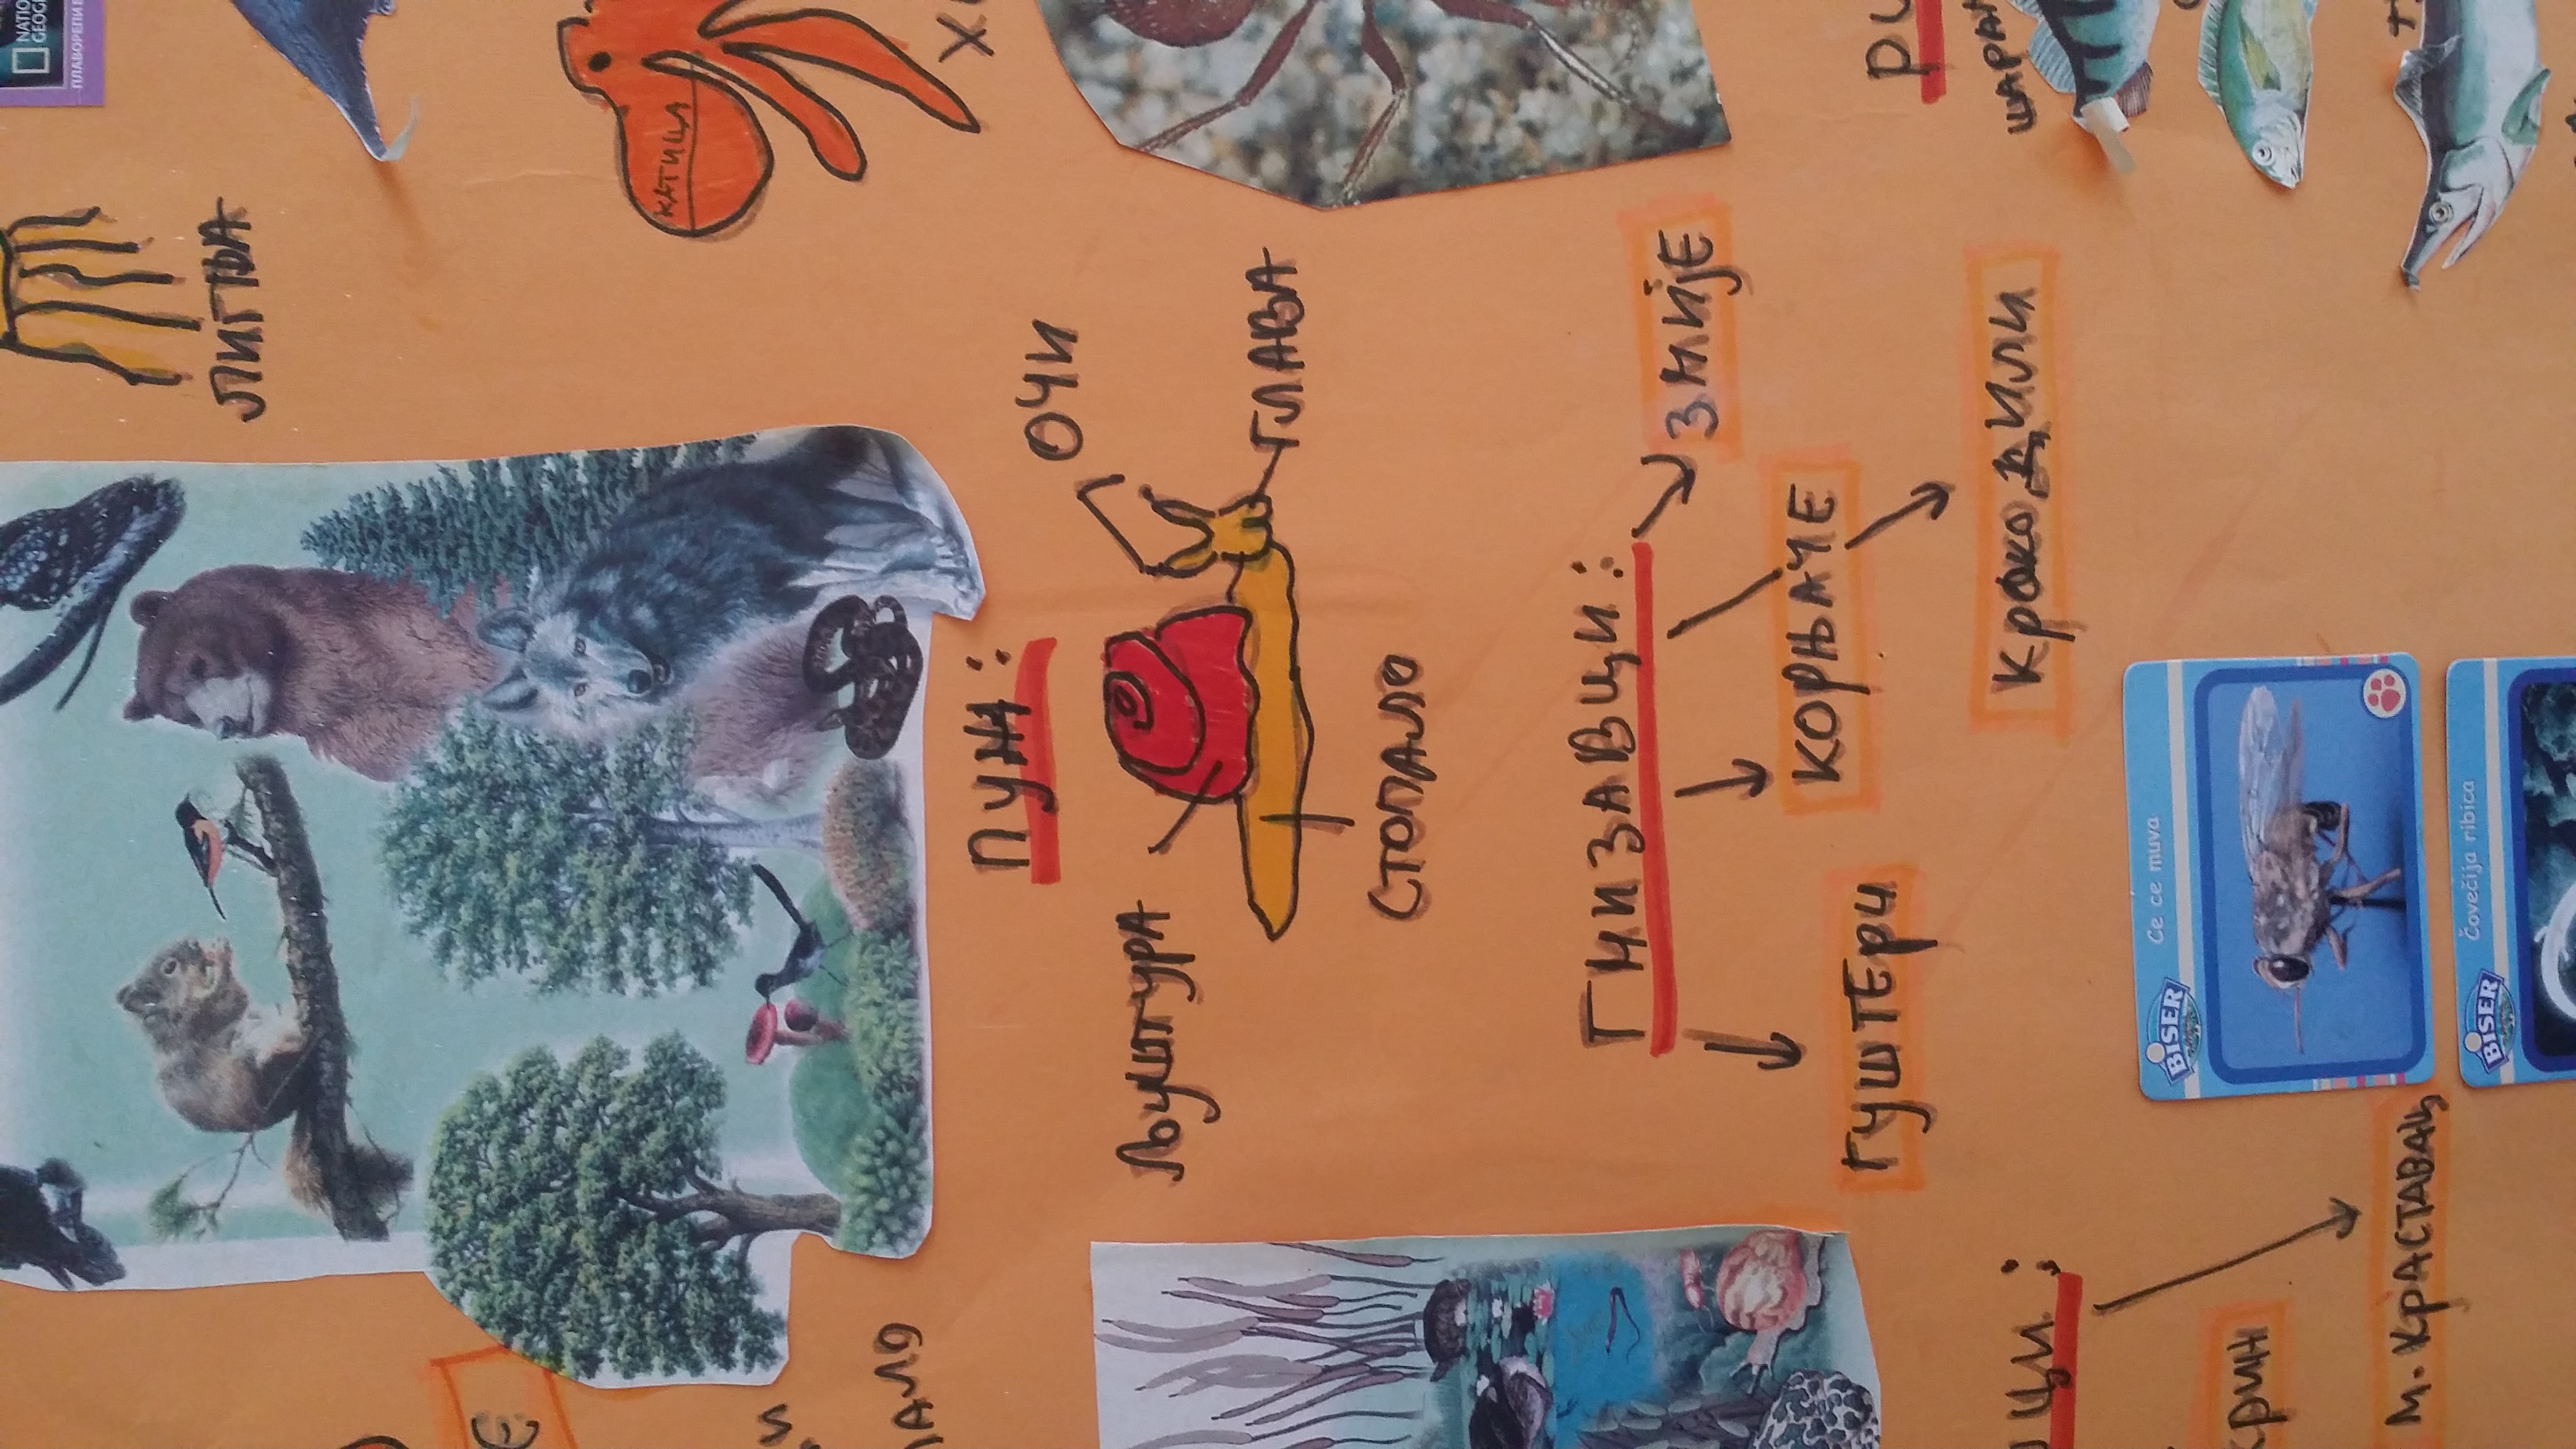 NATIO
GEOG
ПЛАВОРЕПИ
ЛИГЊА
КАТИЦА
ПУЖ:
ОЧИ
ЉУШТУРА
ГЛАВА
СТОПАЛО
ГМИЗАВЦИ:
ЗМИЈЕ
КОРЊАЧЕ
ГУШТЕРИ
КРОКОДИЛИ
ШАРАН
ЦИ:
КРИН
М. КРАСТАВАЦ
BISER
Ce ce muva
BISER
Čovečija ribica